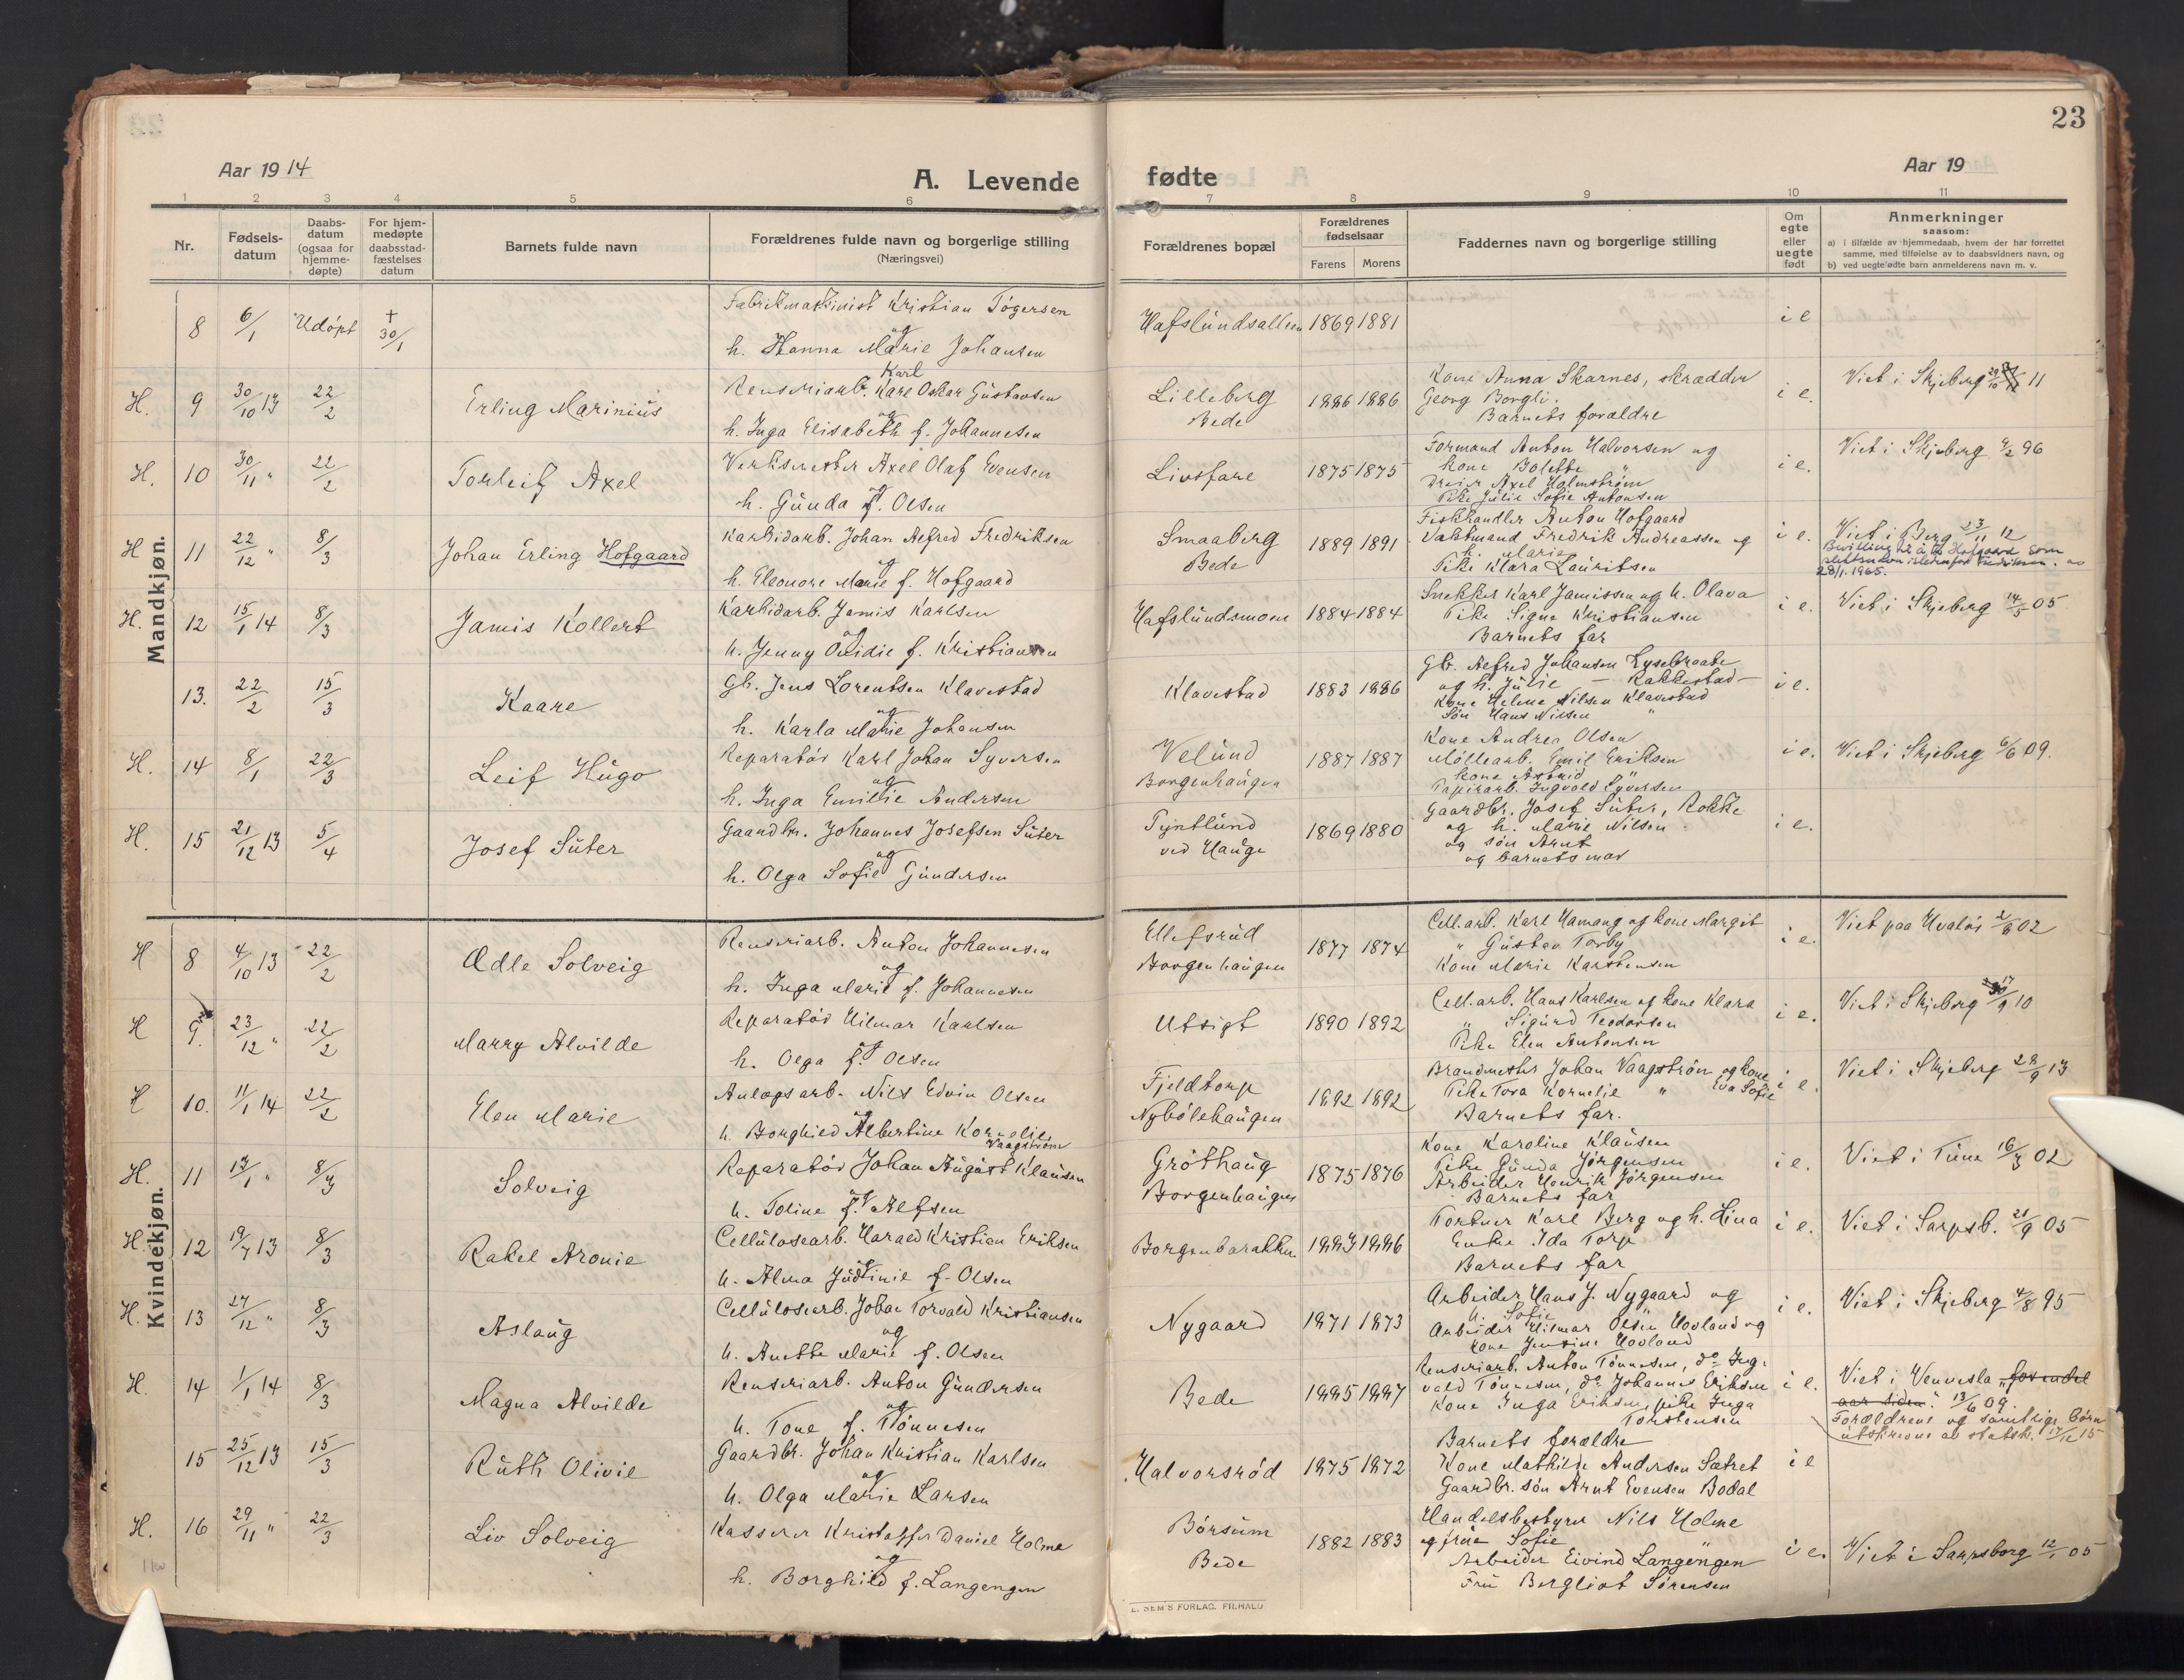 23
Aar 1914
A. Levende fødte
Aar 19
1 2 3 4 5 6 7 8 9 10 11
Nr.
Fødsels-datum
Daabs-datum (ogsaa for hjemme-døpte)
For hjem-medøpte daabsstad-fæstelses datum
Barnets fulde navn
Forældrenes fulde navn og borgerlige stilling
(Næringsvei)
Forældrenes bopæl
Forældrenes fødselsaar
Farens Morens
Faddernes navn og borgerlige stilling
Om egte eller uegte født
Anmerkninger
saasom:
a) i tilfælde av hjemmedaab, hvem der har forrettet samme, med tilføielse av to daabsvidners navn, og
b) ved uegte fødte barn anmelderens navn m. v.
Mandkjøn.
8 6/1 Udöpt † 30/1
Fabrikmaskinist Kristian Tögersen
og
h. Hanna Marie Johansen
Hafslundsalleen 1869 1881
i e
H. 9 30/10 13 22/2 Erling Marinius
Karl
Renseriarb. Kare Oskar Gustavsen
og
h. Inga Elisabeth f. Johannesen
Lilleberg
Bede
1886 1886
Kone Anna Skarnes, skrædder
Georg Borgli.
Barnets forældre
i e.
Viet i Skjeberg 29/10 11
H. 10 30/11 " 22/2 Torleif Axel
Verksmester Axel Olaf Evensen
og
h. Gunda f. Olsen
Livsfare 1875 1875
Formand Anton Halvorsen og
kone Bolette "
Dreier Axel Holmström
Pike Julie Sofie Antonsen
i e.
Viet i Skjeberg 4/2 96
H 11 22/12 " 8/3 Johan Erling Hofgaard
Karbidarb. Johan Alfred Fredriksen
og
h. Eleonore Marie f. Hofgaard
Smaaberg
Bede
1889 1891
Fiskhandler Anton Hofgaard
Vaktmand Fredrik Andreassen og
h. Marie
Pike Klara Lauritsen
i e.
Viet i Berg 23/11 12
Bevilling til å ta Hofgaard som
slektsnavn istedenfor Fredriksen. av
28/1. 1965.
H. 12 15/1 14 8/3 Jamis Kollert
Karbidarb. Jamis Karlsen
og
h. Jenny Ovidie f. Kristiansen
Hafslundsmoen 1884 1884
Snekker Karl Jamissen og h. Olava
Pike Signe Kristiansen
Barnets far
i e.
Viet i Skjeberg 14/5 05
13. 22/2 15/3 Kaare
Gb. Jens Lorentsen Klavestad
og
h. Karla Marie Johansen
Klavestad 1883 1886
Gb. Alfred Johansen Lysebraate
og h. Julie — Rakkestad —
Kone Helene Nilsen Klavestad
Søn Hans Nilsen "
i e.
H. 14 8/1 22/3 Leif Hugo
Reparatör Karl Johan Syversen
og
h. Inga Emilie Andersen
Velund
Borgenhaugen
1887 1887
Kone Andrea Olsen
Möllearb. Emil Eriksen
kone Astrid "
Papirarb. Ingvald Syversen
i e.
Viet i Skjeberg 6/6 09.
H. 15 21/12 13 5/4 Josef Suter
Gaardbr. Johannes Josefsen Suter
og
h. Olga Sofie Gundersen
Tyntlund
ved Hauge
1869 1880
Gaardbr. Josef Suter, Rokke
og h. Marie Nilsen
og søn Arnt
og barnets mor
i e.
Kvindekjøn.
H 8 4/10 13 22/2 Ædle Solveig
Renseriarb. Anton Johannesen
og
h. Inga Marie f. Johannesen
Ellefsrud
Borgenhaugen
1877 1874
Cell.arb. Karl Hamang og kone Margit
" Gustav Torby
Kone Marie Karstensen
i e.
Viet paa Hvaløs 2/8 02
H 9. 23/12 " 22/2 Marry Alvilde
Reparatör Hilmar Karlsen
og
h. Olga f. Olsen
Utsigt 1890 1892
Cell.arb. Hans Karlsen og kone Klara
" Sigurd Teodorsen
Pike Elen Antonsen
i e.
Viet i Skjeberg 17/9 10
H 10. 11/1 14 22/2 Elen Marie
Anlægsarb. Nils Edvin Olsen
og
h. Borghild Albertine Kornelie
Vaagström
Fjeldtorp
Nybölehaugen
1892 1892
Brandmester Johan Vaagström og kone
Pike Tora Kornelie " Eva Sofie
Barnets far.
i e.
Viet i Skjeberg 28/9 13
H. 11 13/1 " 8/3 Solveig
Reparatör Johan August Klausen
og
h. Toline f. Alfsen
Gröthaug
Borgenhaugen
1875 1876
Kone Karoline Klausen
Pike Gunda Jörgensen
Arbeider Henrik Jörgensen
Barnets far
i e.
Viet i Tune 16/3 02
H. 12 19/7 13 8/3 Rakel Aronie
Cellulosearb. Harald Kristian Eriksen
og
h. Alma Justinie f. Olsen
Borgenbarakken 1883 1886
Tortner Karl Berg og h. Lina
Enke Ida Torp
Barnets far
i e.
Viet i Sarpsb. 21/9 05
H. 13 27/12 " 8/3 Aslaug
Cellulosearb. Johan Torvald Kristiansen
og
h. Anette Marie f. Olsen
Nygaard 1871 1873
Arbeider Hans J. Nygaard og
h. Sofie
Arbeider Hilmar Olsen Hovland og
kone Jensine Hovland
i e.
Viet i Skjeberg 4/8 95
H. 14 1/1 14 8/3 Magna Alvilde
Renseriarb. Anton Gundersen
og
h. Tone f. Tönnesen
Bede 1885 1887
Renseriarb. Anton Tönnesen, do Ing-
vald Tönnesen, do Johannes Eriksen
Kone Inga Eriksen, pike Inga
Torstensen
i e.
Viet i Vennesla "for endel
aar siden". 13/6 09.
Forældrene og samtlige børn
utskrevne av statsk. 17/12 15
15 25/12 13 15/3 Ruth Olivie
Gaardbr. Johan Kristian Karlsen
og
h. Olga Marie Larsen
Halvorsröd 1875 1872
Barnets forældre
Kone Mathilde Andersen Sætret
Gaardbr. søn Arnt Evensen Bodal
i e
H. 16 29/11 " 22/3 Liv Solveig
Kasserer Kristoffer Daniel Holme
og
h. Borghild f. Langengen
Börsum
Bede
1882 1883
Handelsbestyrer Nils Holme
og frue Sofie "
Arbeider Eivind Langengen
Fru Bergliot Sörensen
i e.
Viet i Sarpsborg 12/1 05
E. SEM'S FORLAG. FR.HALD